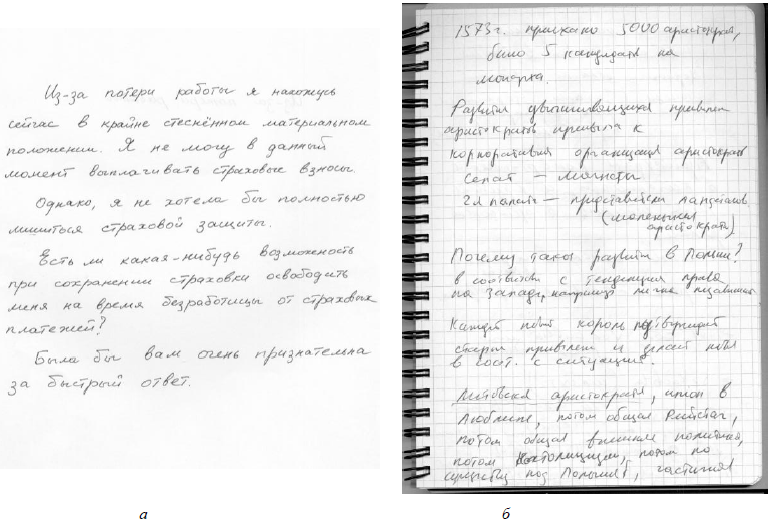 Из-за потери работы я нахожусь
сейчас в крайне стеснённом материальном
положении. Я не могу в данный
момент выплачивать страховые взносы.
Однако, я не хотела бы полностью
лишиться страховой защиты.
Есть ли какая-нибудь возможность
при сохранении страховки освободить
меня на время безработицы от страховых
платежей?
Была бы вам очень признательна
за быстрый ответ.
а
1573г. приехало 5000
было 5 кандидатов на
монарха.
Развитие
аристократов к
корпоративная организация аристократов
Сенат — магнаты
2я палата — представители
(маленькая
аристократия)
Почему такое развитие в Польше?
в соответствии с тенденция права
на Западе, например
Каждый новый король
старые привилегии и делает новые
в соот. с ситуацией.
Литовская аристократия, в
Люблине, потом общая Рейхстаг,
потом общая внешняя политика,
потом потом по
под Польшей,
б